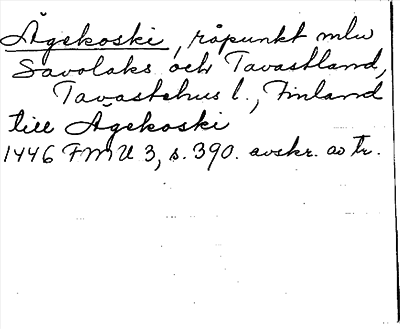 Ågekoski, råpunkt mlw
Savolaks och Tavastland,
Tavastehus l., Finland
till Ågekoski
1446 FMU 3, s. 390. avskr. av tr.